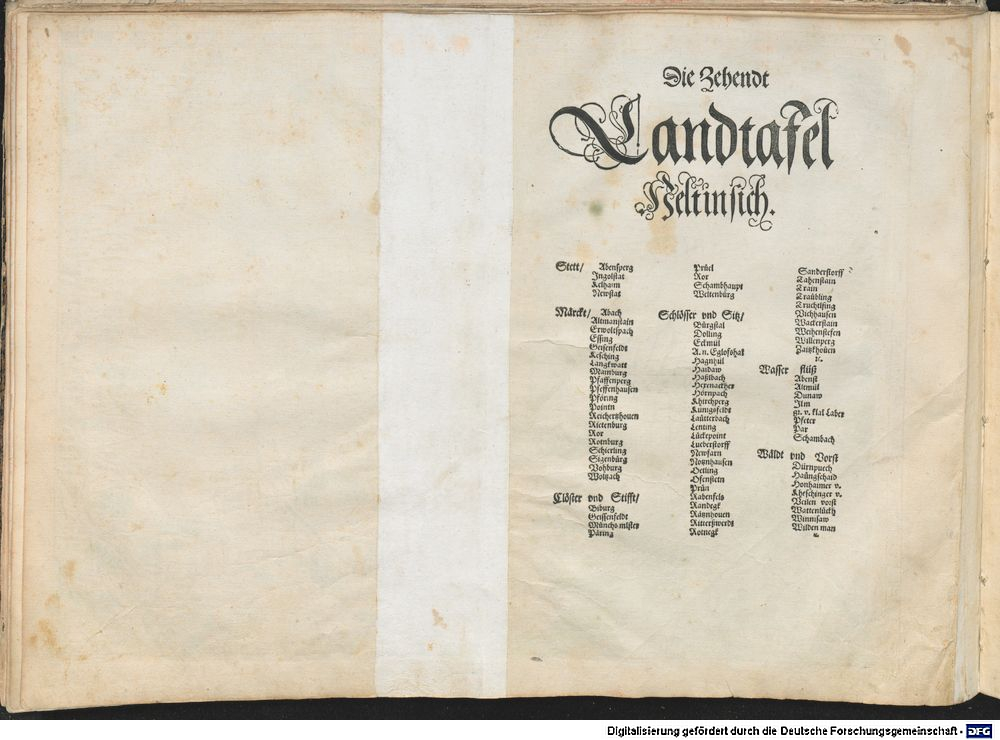 Die Zehendt
Landtafel
Heltinsich.
Stett/ Abensperg
Ingolstat
Kelhaim
Newstat
Märckt/ Abach
Altmanstain
Erwoltspach
Essing
Geisenfeldt
Kesching
Langkwatt
Mainburg
Pfaffenperg
Pfeffenhausen
Pföring
Pointn
Reichertzhouen
Rietenburg
Ror
Rotnburg
Schierling
Sigenbürg
Vohburg
Woltzach
Clöster vnd Stifft/
Biburg
Geissenfeldt
Münchsmüster
Päring
Prüel
Ror
Schambhaupt
Weltenbürg
Schlösser vnd Sitz/
Bürgstal
Dolling
Eckmül
A. n. Eglofshaī
Hagnhül
Haidaw
Haslbach
Hexenacther
Hörnpach
Khirchperg
Künigsfeldt
Lautterbach
Lenting
Lückepoint
Lueberstorff
Newfarn
Notznhausen
Oetling
Ofenstetn
Prün
Rabenfels
Randegk
Rätznhouen
Ritterßwerdt
Rotnegk
Sanderstorff
Tahenstain
Train
Traübling
Truchtlfing
Vichhausen
Wackerstain
Weihenstefen
Willenperg
Zaitzkhouen
ꝛc.
Wasser flüß
Abenst
Altmül
Dunaw
Ilm
gr. v. klaī Laber
Pfeter
Par
Schambach
Wäldt vnd Vorst
Dürnpuech
Haüngschaid
Honhaimer v.
Kheschinger v.
Veilen vorst
Wattenlückh
Winnisaw
Wilden man
ꝛc.
Digitalisierung gefördert durch die Deutsche Forschungsgemeinschaft - DFG